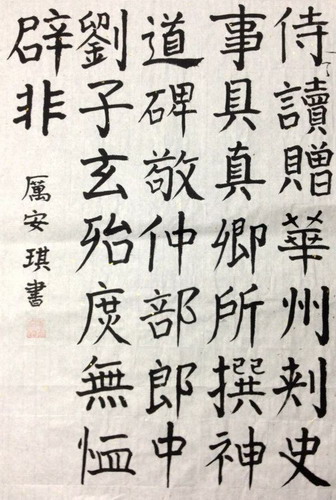 侍讀贈華州刾史
事具真卿所撰神
道碑敬仲部郎中
劉子玄殆庶無恤
辟非
厲安琪書